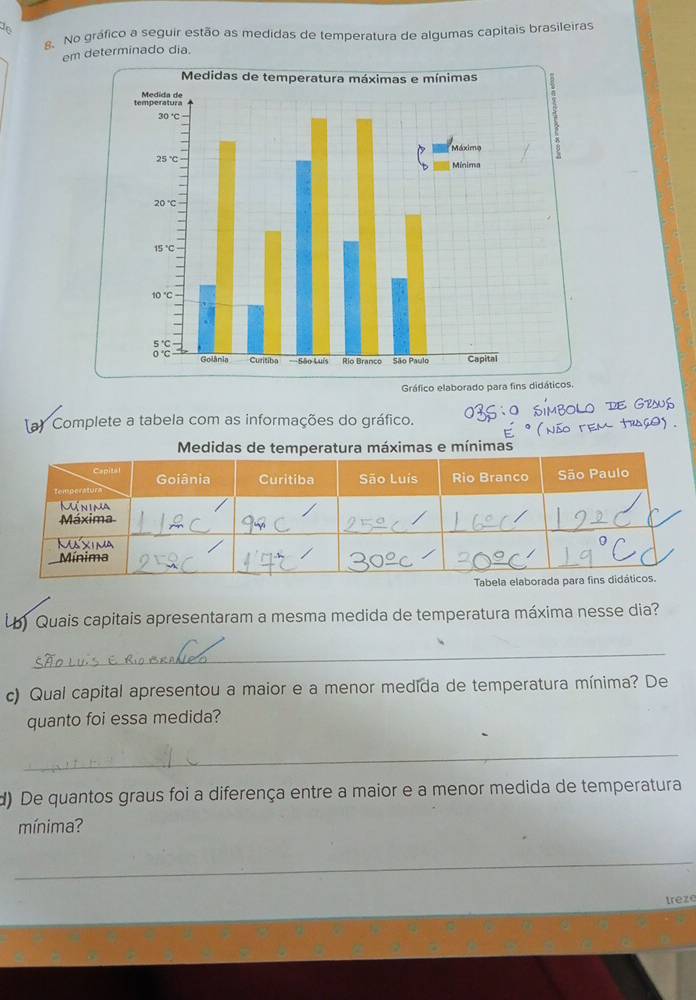 8. No gráfico a seguir estão as medidas de temperatura de algumas capitais brasileiras
em determinado dia.
Medidas de temperatura máximas e mínimas
Medida de
temperatura
30 °C
25 °C
20 °C
15 °C
10 °C
5 °C
0 °C
Máxima
Mínima
Goiânia Curitiba São Luís Rio Branco São Paulo Capital
Gráfico elaborado para fins didáticos.
a) Complete a tabela com as informações do gráfico.
OBS: O SÍMBOLO DE GRAUS
É ° (NÃO TEM TRAÇO).
Medidas de temperatura máximas e mínimas
Capital
Temperatura
Goiânia Curitiba São Luís Rio Branco São Paulo
MÍNIMA
Máxima 11ºC 9ºC 25ºC 16ºC 12ºC
MÁXIMA
Mínima 25ºC 17ºC 30ºC 30ºC 19°C
Tabela elaborada para fins didáticos.
b) Quais capitais apresentaram a mesma medida de temperatura máxima nesse dia?
SÃO LUIS E RIO BRANCO
c) Qual capital apresentou a maior e a menor medida de temperatura mínima? De
quanto foi essa medida?
d) De quantos graus foi a diferença entre a maior e a menor medida de temperatura
mínima?
treze